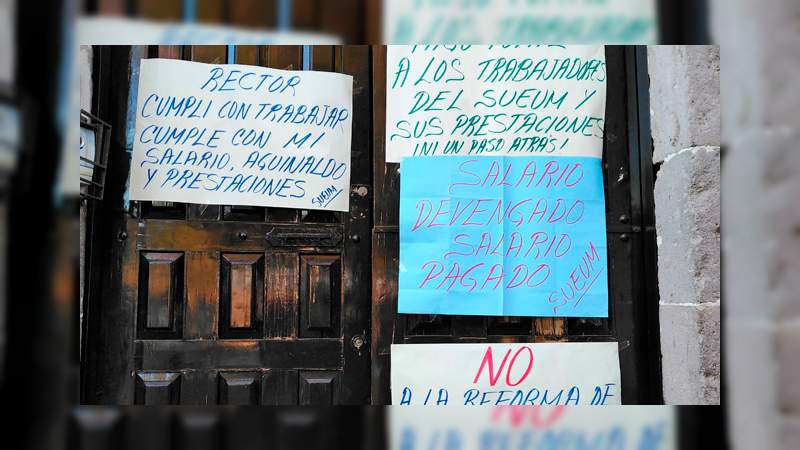 RECTOR
CUMPLI CON TRABAJAR
CUMPLE CON MI
SALARIO, AGUINALDO
Y PRESTACIONES
SUEUM
A LOS TRABAJADORES
DEL SUEUM Y
SUS PRESTACIONES
¡NI UN PASO ATRAS!
SALARIO
DEVENGADO
SALARIO
PAGADO
SUEUM
NO
A LA REFORMA DE